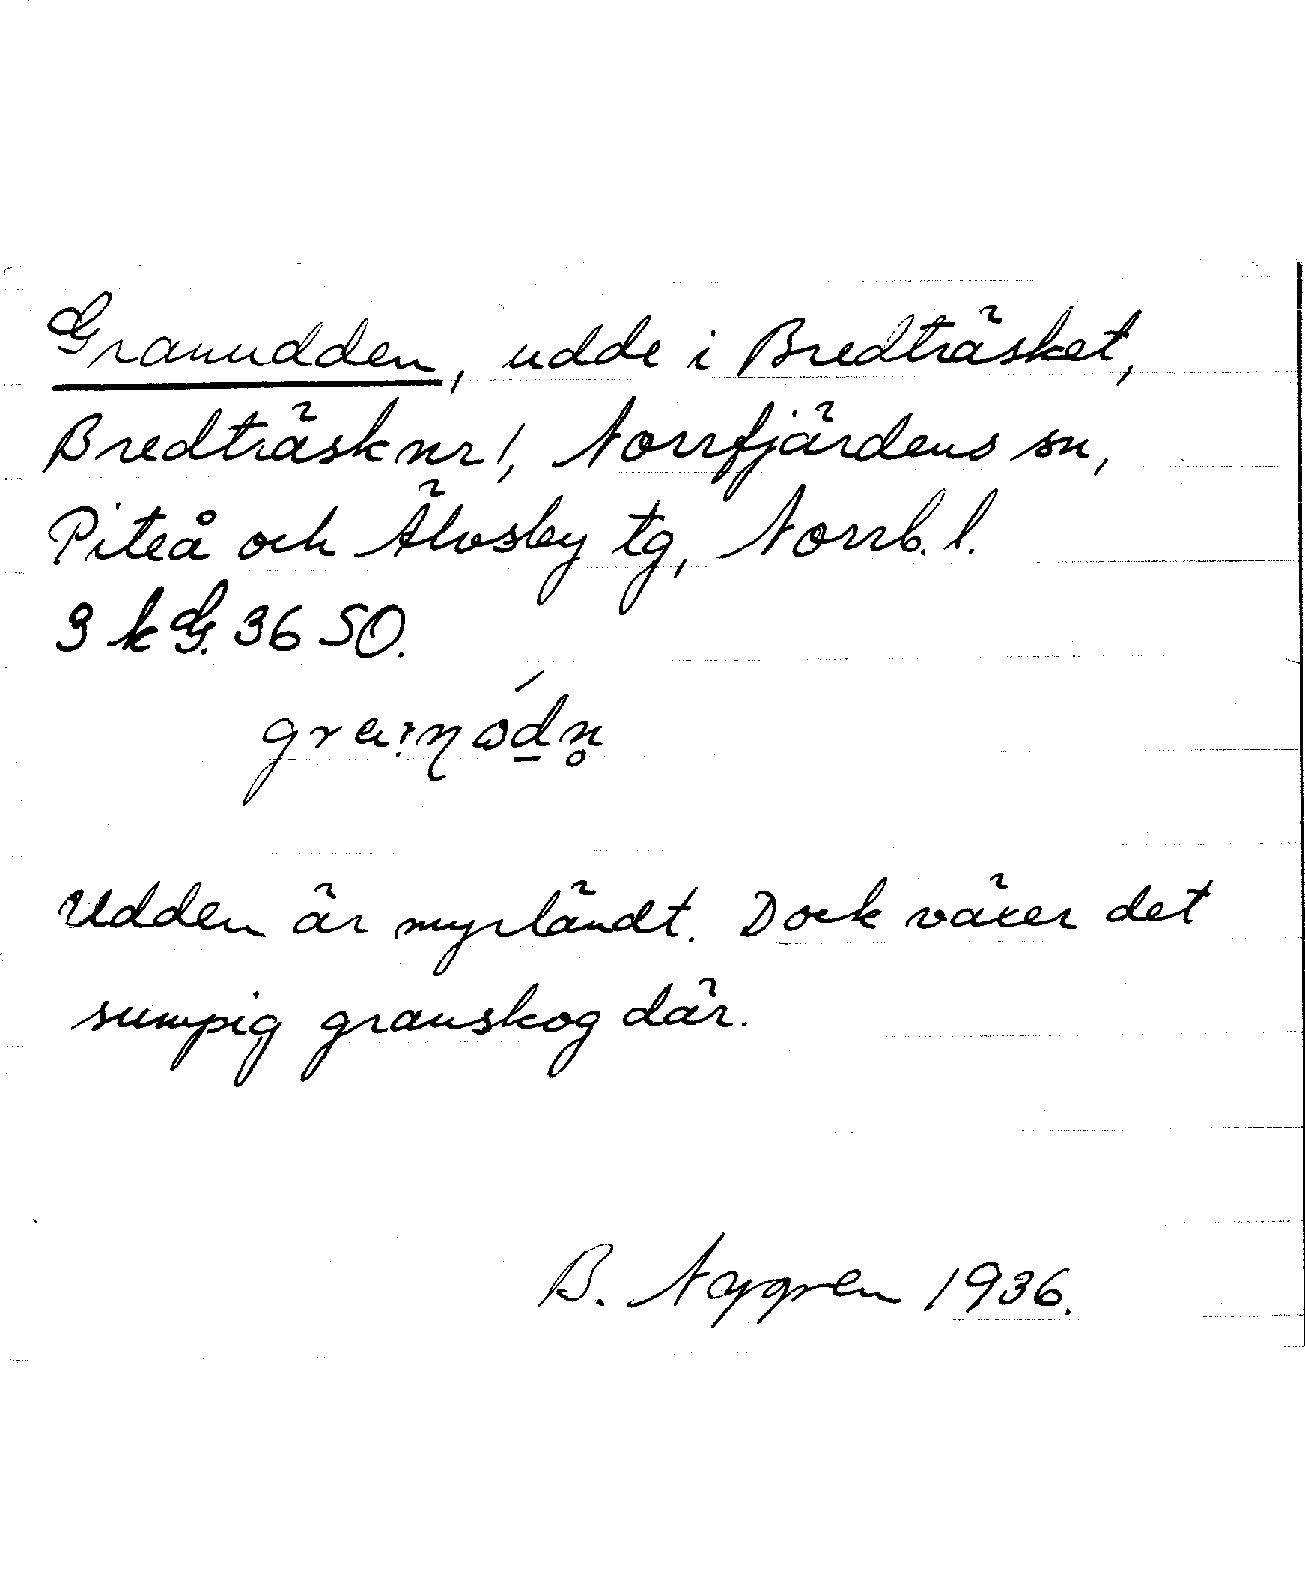 Granudden, udde i Bredträsket,
Bredträsk nr 1, Norrfjärdens sn,
Piteå och Älvsby tg, Norrb. l.
9 kG. 36 SO.
Udden är myrländt. Dock växer det
sumpig granskog där.
B. Nygren 1936.